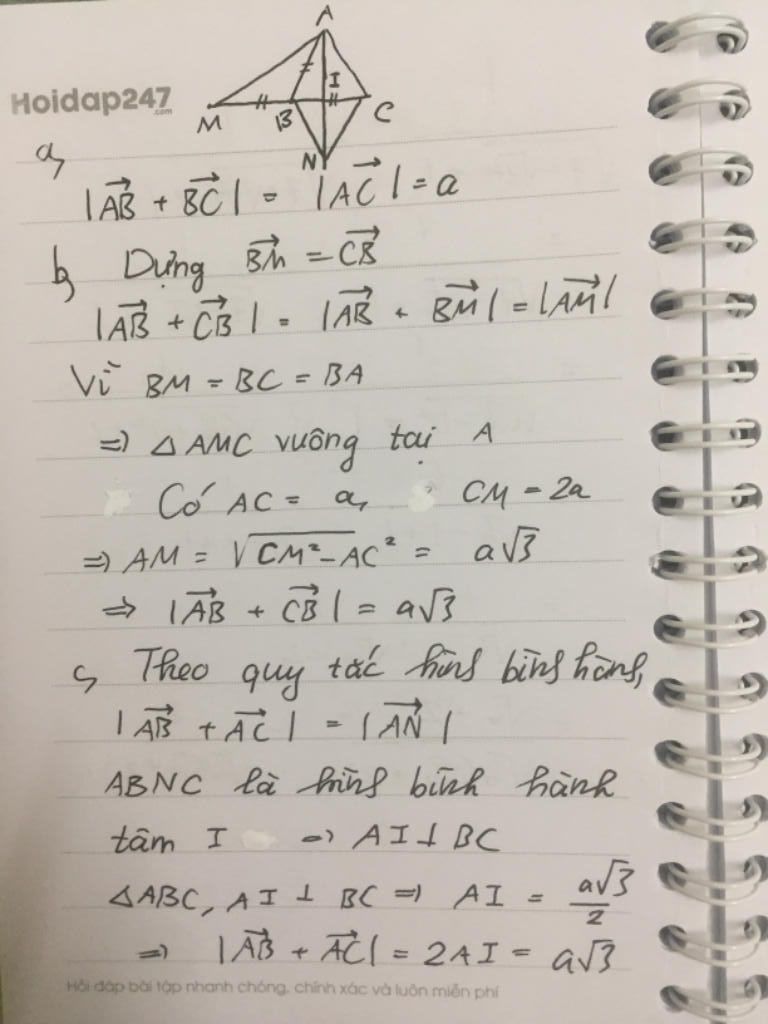 A
I
M
B
C
N
Hoidap247
.com
a,
|AB→ + BC→| = |AC→| = a
b, Dựng BM→ = CB→
|AB→ + CB→| = |AB→ + BM→| = |AM→|
Vì BM = BC = BA
=> △AMC vuông tại A
Có AC = a, CM = 2a
=> AM = √(CM² - AC²) = a√3
=> |AB→ + CB→| = a√3
c, Theo quy tắc hình bình hành,
|AB→ + AC→| = |AN→|
ABNC là hình bình hành
tâm I => AI ⊥ BC
△ABC, AI ⊥ BC => AI = a√3/2
=> |AB→ + AC→| = 2AI = a√3
Hỏi đáp bài tập nhanh chóng, chính xác và luôn miễn phí